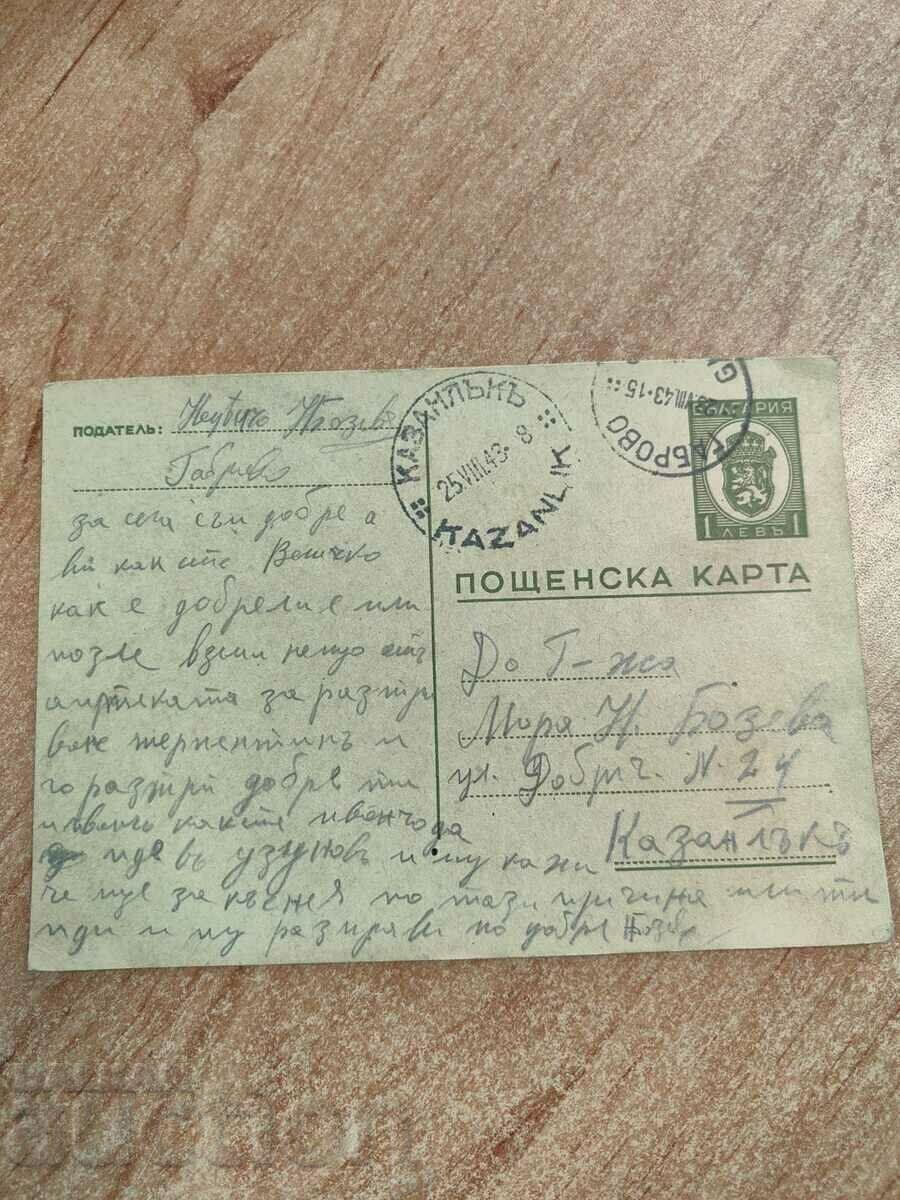 ПОДАТЕЛЬ: Бозевъ
Габрово
за сега съм добре а
ви как сте Величко
как е добрели е или
по зле взели нещо отъ
аптеката за разтри
ване терпентинъ и
го разтри добре
Иванчо да
иде въ и му кажи
че ще закъснея по тази причина или ти
иди и му разправи по добре Бозевъ
КАЗАНЛЪКЪ
25.VIII.43-8
KAZANLIK
ГАБРОВО
VIII.43-15
БЪЛГАРИЯ
1 ЛЕВЪ 1
ПОЩЕНСКА КАРТА
До Г-жа
Мара Н. Бозева
ул. Добрич. N. 24
Казанлъкъ
аукцион